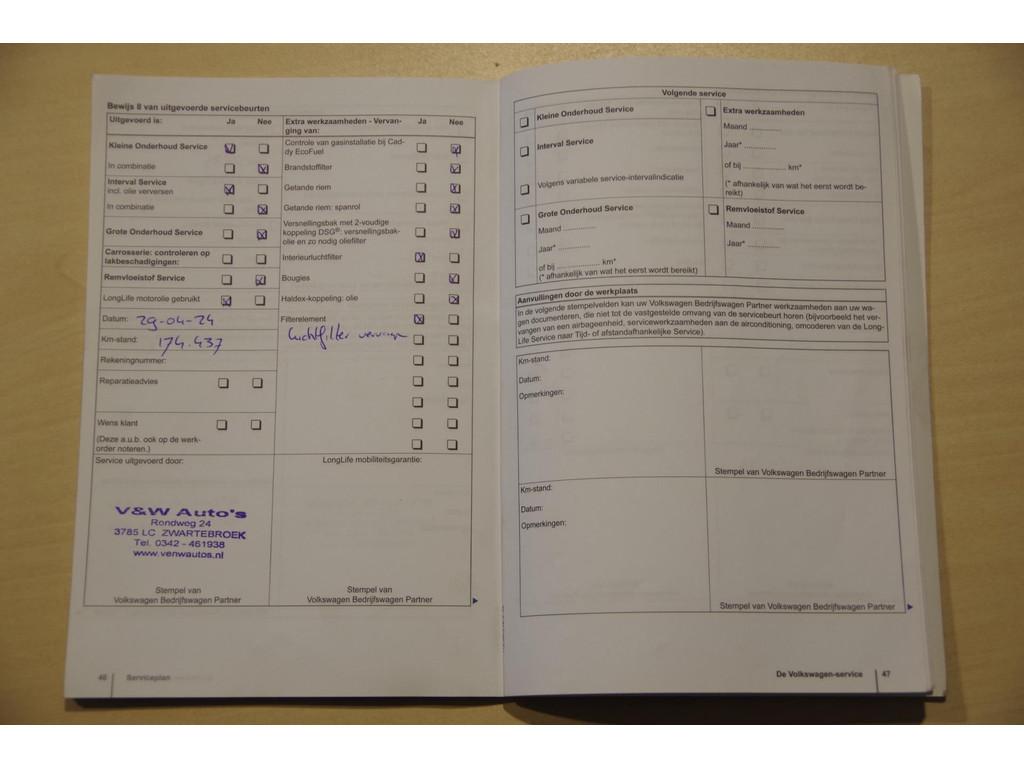 Bewijs 8 van uitgevoerde servicebeurten
Uitgevoerd is: Ja Nee
Kleine Onderhoud Service
In combinatie
Interval Service
incl. olie verversen
In combinatie
Grote Onderhoud Service
Carrosserie: controleren op
lakbeschadigingen:
Remvloeistof Service
LongLife motorolie gebruikt
Datum: 29-04-24
Km-stand: 174.437
Rekeningnummer:
Reparatieadvies
Wens klant
(Deze a.u.b. ook op de werk-
order noteren.)
Service uitgevoerd door:
V&W Auto's
Rondweg 24
3785 LC ZWARTEBROEK
Tel. 0342 - 461938
www.venwautos.nl
Stempel van
Volkswagen Bedrijfswagen Partner
Extra werkzaamheden - Vervan-
ging van: Ja Nee
Controle van gasinstallatie bij Cad-
dy EcoFuel
Brandstoffilter
Getande riem
Getande riem: spanrol
Versnellingsbak met 2-voudige
koppeling DSG®: versnellingsbak-
olie en zo nodig oliefilter
Interieurluchtfilter
Bougies
Haldex-koppeling: olie
Filterelement
luchtfilter
LongLife mobiliteitsgarantie:
Stempel van
Volkswagen Bedrijfswagen Partner
46 Serviceplan
Volgende service
Kleine Onderhoud Service
Interval Service
Volgens variabele service-intervalindicatie
Grote Onderhoud Service
Maand ..............
Jaar* ..............
of bij ................... km*
(* afhankelijk van wat het eerst wordt bereikt)
Extra werkzaamheden
Maand ..............
Jaar* ..............
of bij ................... km*
(* afhankelijk van wat het eerst wordt be-
reikt)
Remvloeistof Service
Maand ..............
Jaar* ..............
Aanvullingen door de werkplaats
In de volgende stempelvelden kan uw Volkswagen Bedrijfswagen Partner werkzaamheden aan uw wa-
gen documenteren, die niet tot de vastgestelde omvang van de servicebeurt horen (bijvoorbeeld het ver-
vangen van een airbageenheid, servicewerkzaamheden aan de airconditioning, omcoderen van de Long-
Life Service naar Tijd- of afstandafhankelijke Service).
Km-stand:
Datum:
Opmerkingen:
Stempel van Volkswagen Bedrijfswagen Partner
Km-stand:
Datum:
Opmerkingen:
Stempel van Volkswagen Bedrijfswagen Partner
De Volkswagen-service 47